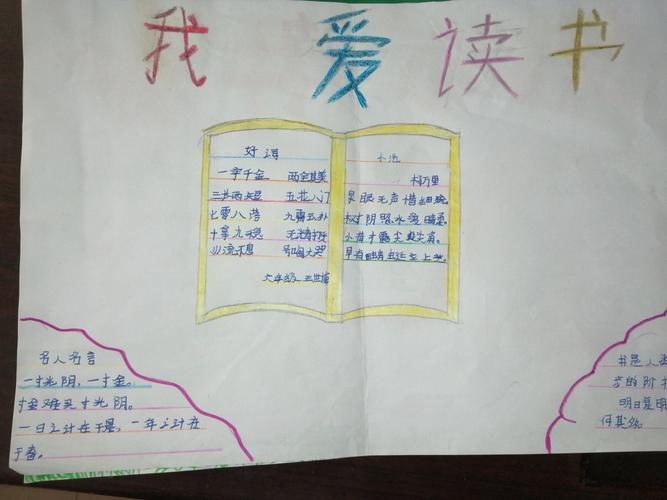 我爱读书
好词
一字千金 两全其美
三长两短 五花八门
七零八落 九霄云外
十拿九稳 无精打采
川流不息 号啕大哭
六年级
小池
杨万里
泉眼无声惜细流
树阴照水爱晴柔。
小荷才露尖尖角。
早有蜻蜓立上头。
名人名言
一寸光阴,一寸金。
寸金难买寸光阴。
一日之计在于晨,一年之计在
于春。
书是人类
步的阶梯
明日复明
何其多。